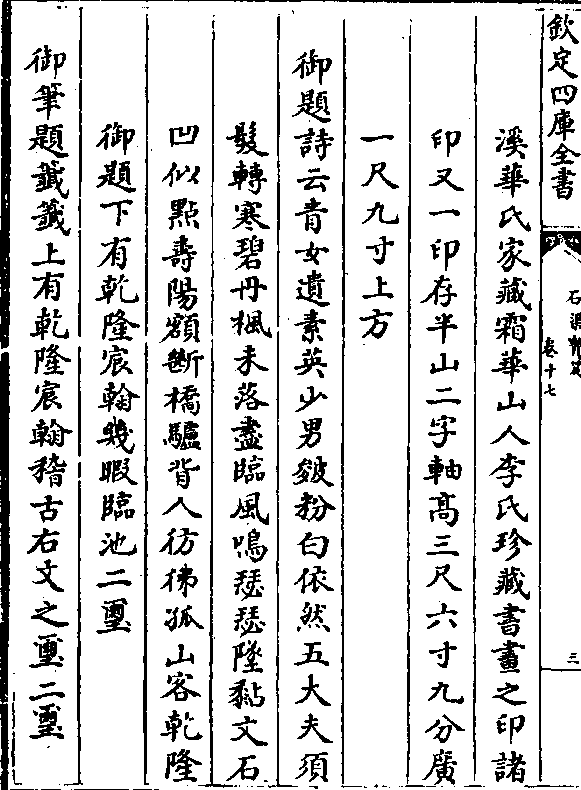 欽定四庫全書
石渠寶笈
卷十七
三
溪華氏家藏霜華山人李氏珍藏書畫之印諸
印又一印存半山二字軸高三尺六寸九分廣
一尺九寸上方
御題詩云青女遺素英少男皴粉白依然五大夫須
髮轉寒碧丹楓未落盡臨風鳴瑟瑟墜黏文石
凹似點壽陽額斷橋驢背人彷彿孤山客乾隆
御題下有乾隆宸翰幾暇臨池二璽
御筆題籤籤上有乾隆宸翰稽古右文之璽二璽